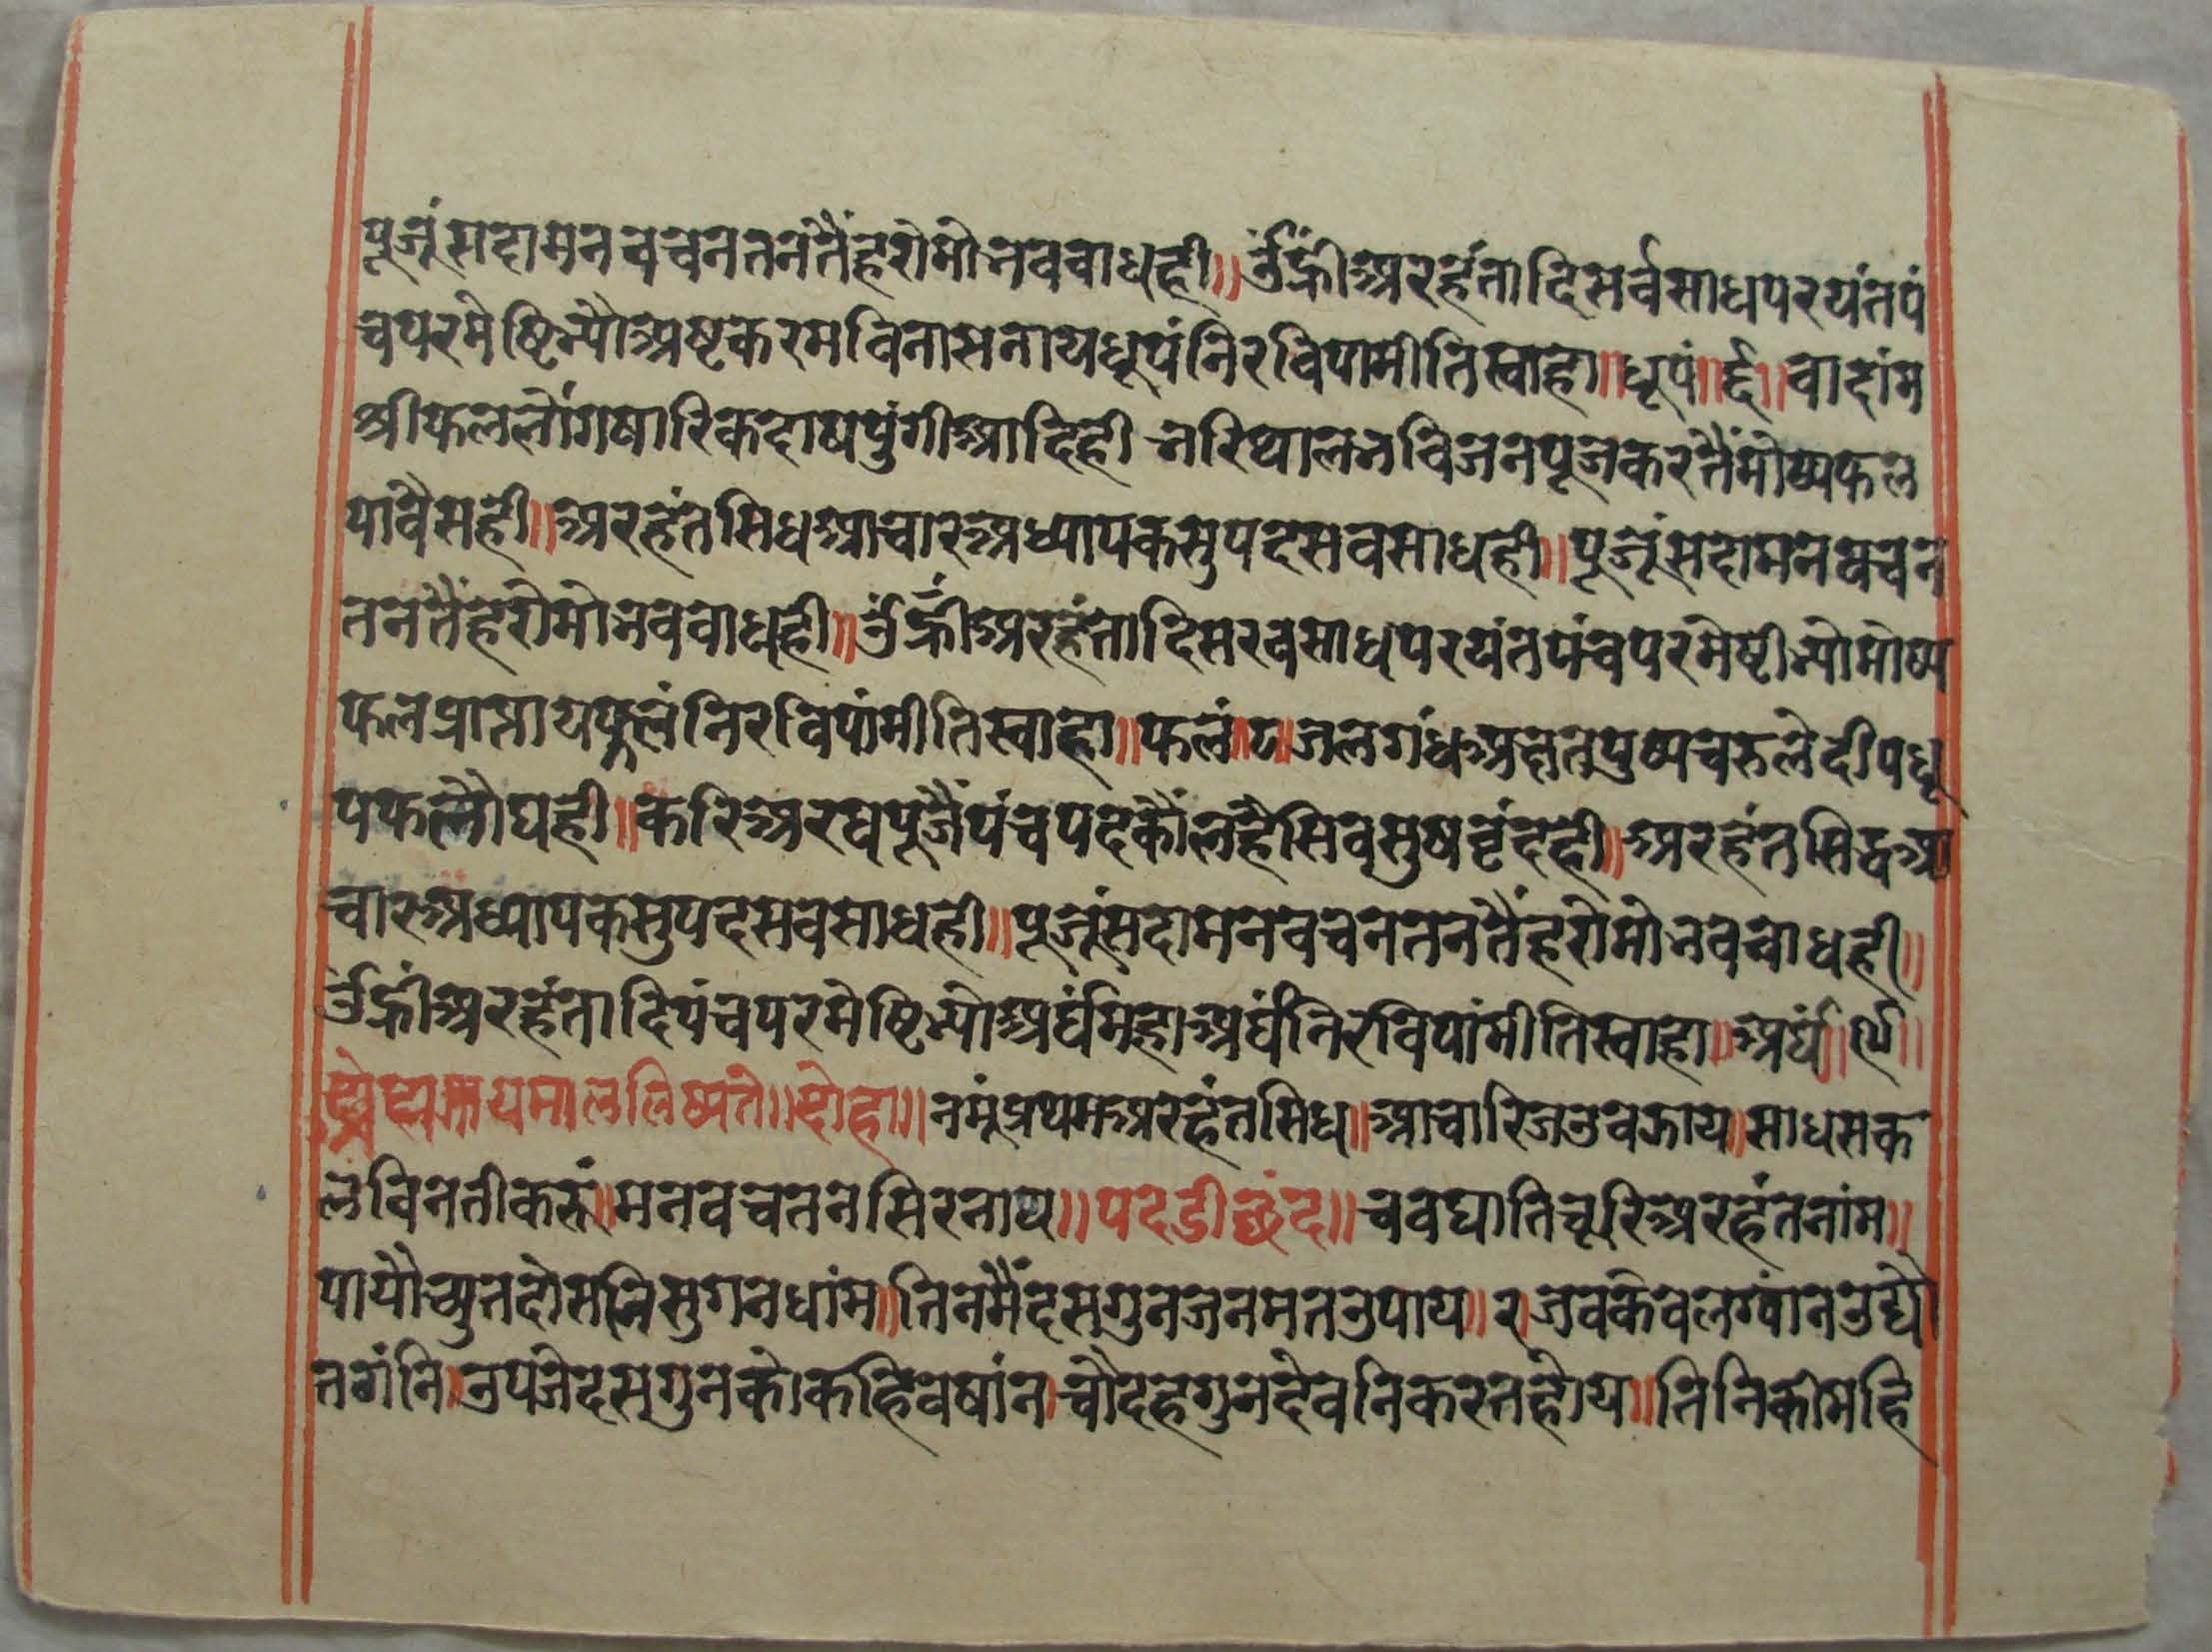 पूजूंसदामनवचनतनतैंहरोमोभवबाधही॥ उँह्रींअरहंतादिसर्वसाधपरयंतपं
चपरमेष्टिभ्यौअष्टकरमविनासनायधूपंनिरविपामीतिस्वाहा॥धूपं॥ ॥वादांम
श्रीफललौंगषारिकदाषपुंगीआदिही भरिथालभविजनपूजकरतैंमोष्यफल
पावैसही॥अरहंतसिधआचारअध्यापकसुपदसवसाधही॥पूजूंसदामनवचन
तनतैंहरोमोभवबाधही॥उँह्रींअरहंतादिसरवसाधपरयंतपंचपरमेष्टीभ्योमोष्य
फलप्राप्तायफलंनिरविपांमीतिस्वाहा॥फलं।८।जलगंधअक्षतपुष्पचरुलेदीपधू
पफलौघही॥करिअरघपूजैंपंचपदकौंलहैसिवसुषवृंदही॥अरहंतसिद्धआ
चारअध्यापकसुपदसवसाधही॥पूजूंसदामनवचनतनतैंहरोमोभवबाधही॥
उँह्रींअरहंतादिपंचपरमेष्टिभ्योअर्घंमहाअर्घंनिरविपांमीतिस्वाहा॥अर्घं॥९॥
जयमाललिष्यते॥दोहा॥नमूंप्रथमअरहंतसिध॥आचारिजउवझाय।साधसक
लविनतीकरूं॥मनवचतनसिरनाय॥पदडीछंद॥चवघातिचूरिअरहंतनांम॥
पायौच्युतदोसनिसुगनधांम॥तिनमैंदसगुनजनमतउपाय॥२।जवकेवलग्यांनउद्यो
तगंनि।उपजेदसगुनकोकहिवषांन।चौदहगुनदेवनिकरतहोय॥तिनिकीमहि